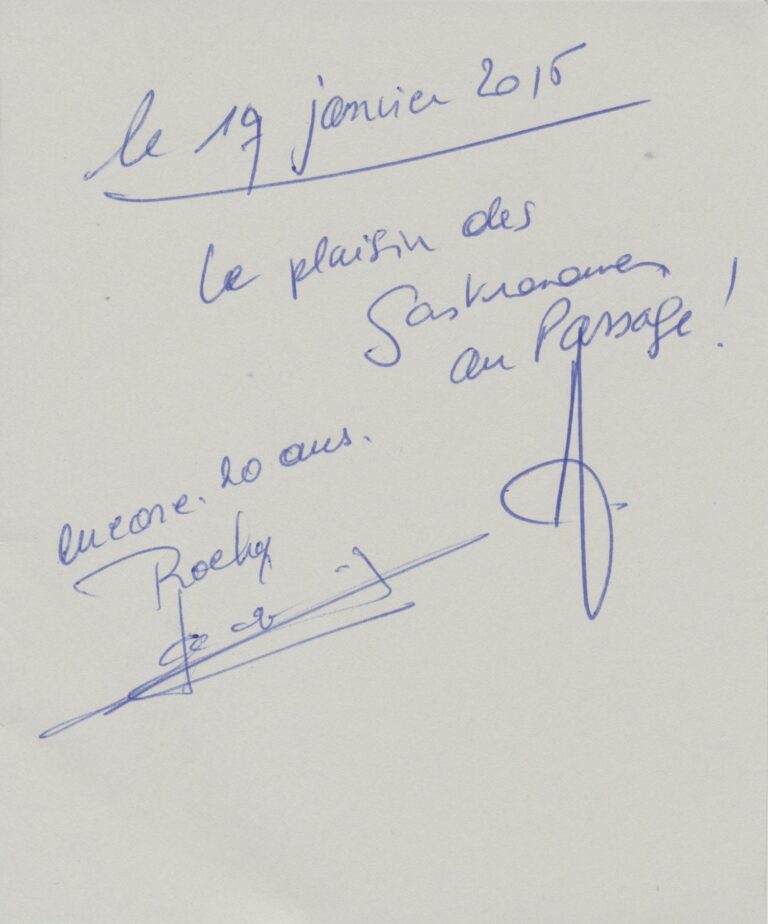 le 17 janvier 2015
Le plaisir des
Gastronomes
au Passage !
encore. 20 ans.
Rocky